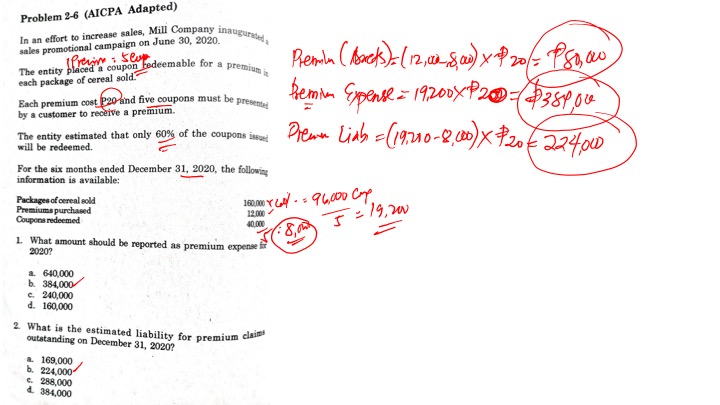 Problem 2-6 (AICPA Adapted)
In an effort to increase sales, Mill Company inaugurated a
sales promotional campaign on June 30, 2020.
1 Premium = 5 Coup
The entity placed a coupon redeemable for a premium in
each package of cereal sold.
Each premium cost P20 and five coupons must be presented
by a customer to receive a premium.
The entity estimated that only 60% of the coupons issued
will be redeemed.
For the six months ended December 31, 2020, the following
information is available:
Packages of cereal sold 160,000 = 96,000 Coup
Premiums purchased 12,000 5 = 19,200
Coupons redeemed 40,000
5 = 8,000
1. What amount should be reported as premium expense for
2020?
a. 640,000
b. 384,000
c. 240,000
d. 160,000
2. What is the estimated liability for premium claims
outstanding on December 31, 2020?
a. 169,000
b. 224,000
c. 288,000
d. 384,000
Premium (Assets) = (12,000-8,000) x ₱20 = ₱80,000
Premium Expense = 19,200 x ₱20 = ₱384,000
Premium Liab = (19,200-8,000) x ₱20 = 224,000